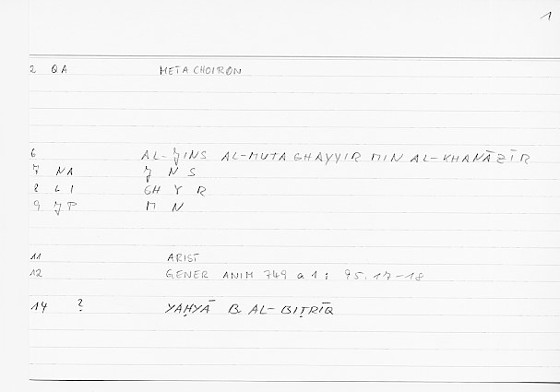 1
2 QA METACHOIRON
6 AL-ǦINS AL-MUTAGHAYYIR MIN AL-KHANĀZĪR
7 NA Ǧ N S
8 GI GH Y R
9 JP M N
11 ARIST
12 GENER ANIM 749 a 1 : 95.17-18
14 ? YAḤYĀ B AL-BIṬRĪQ